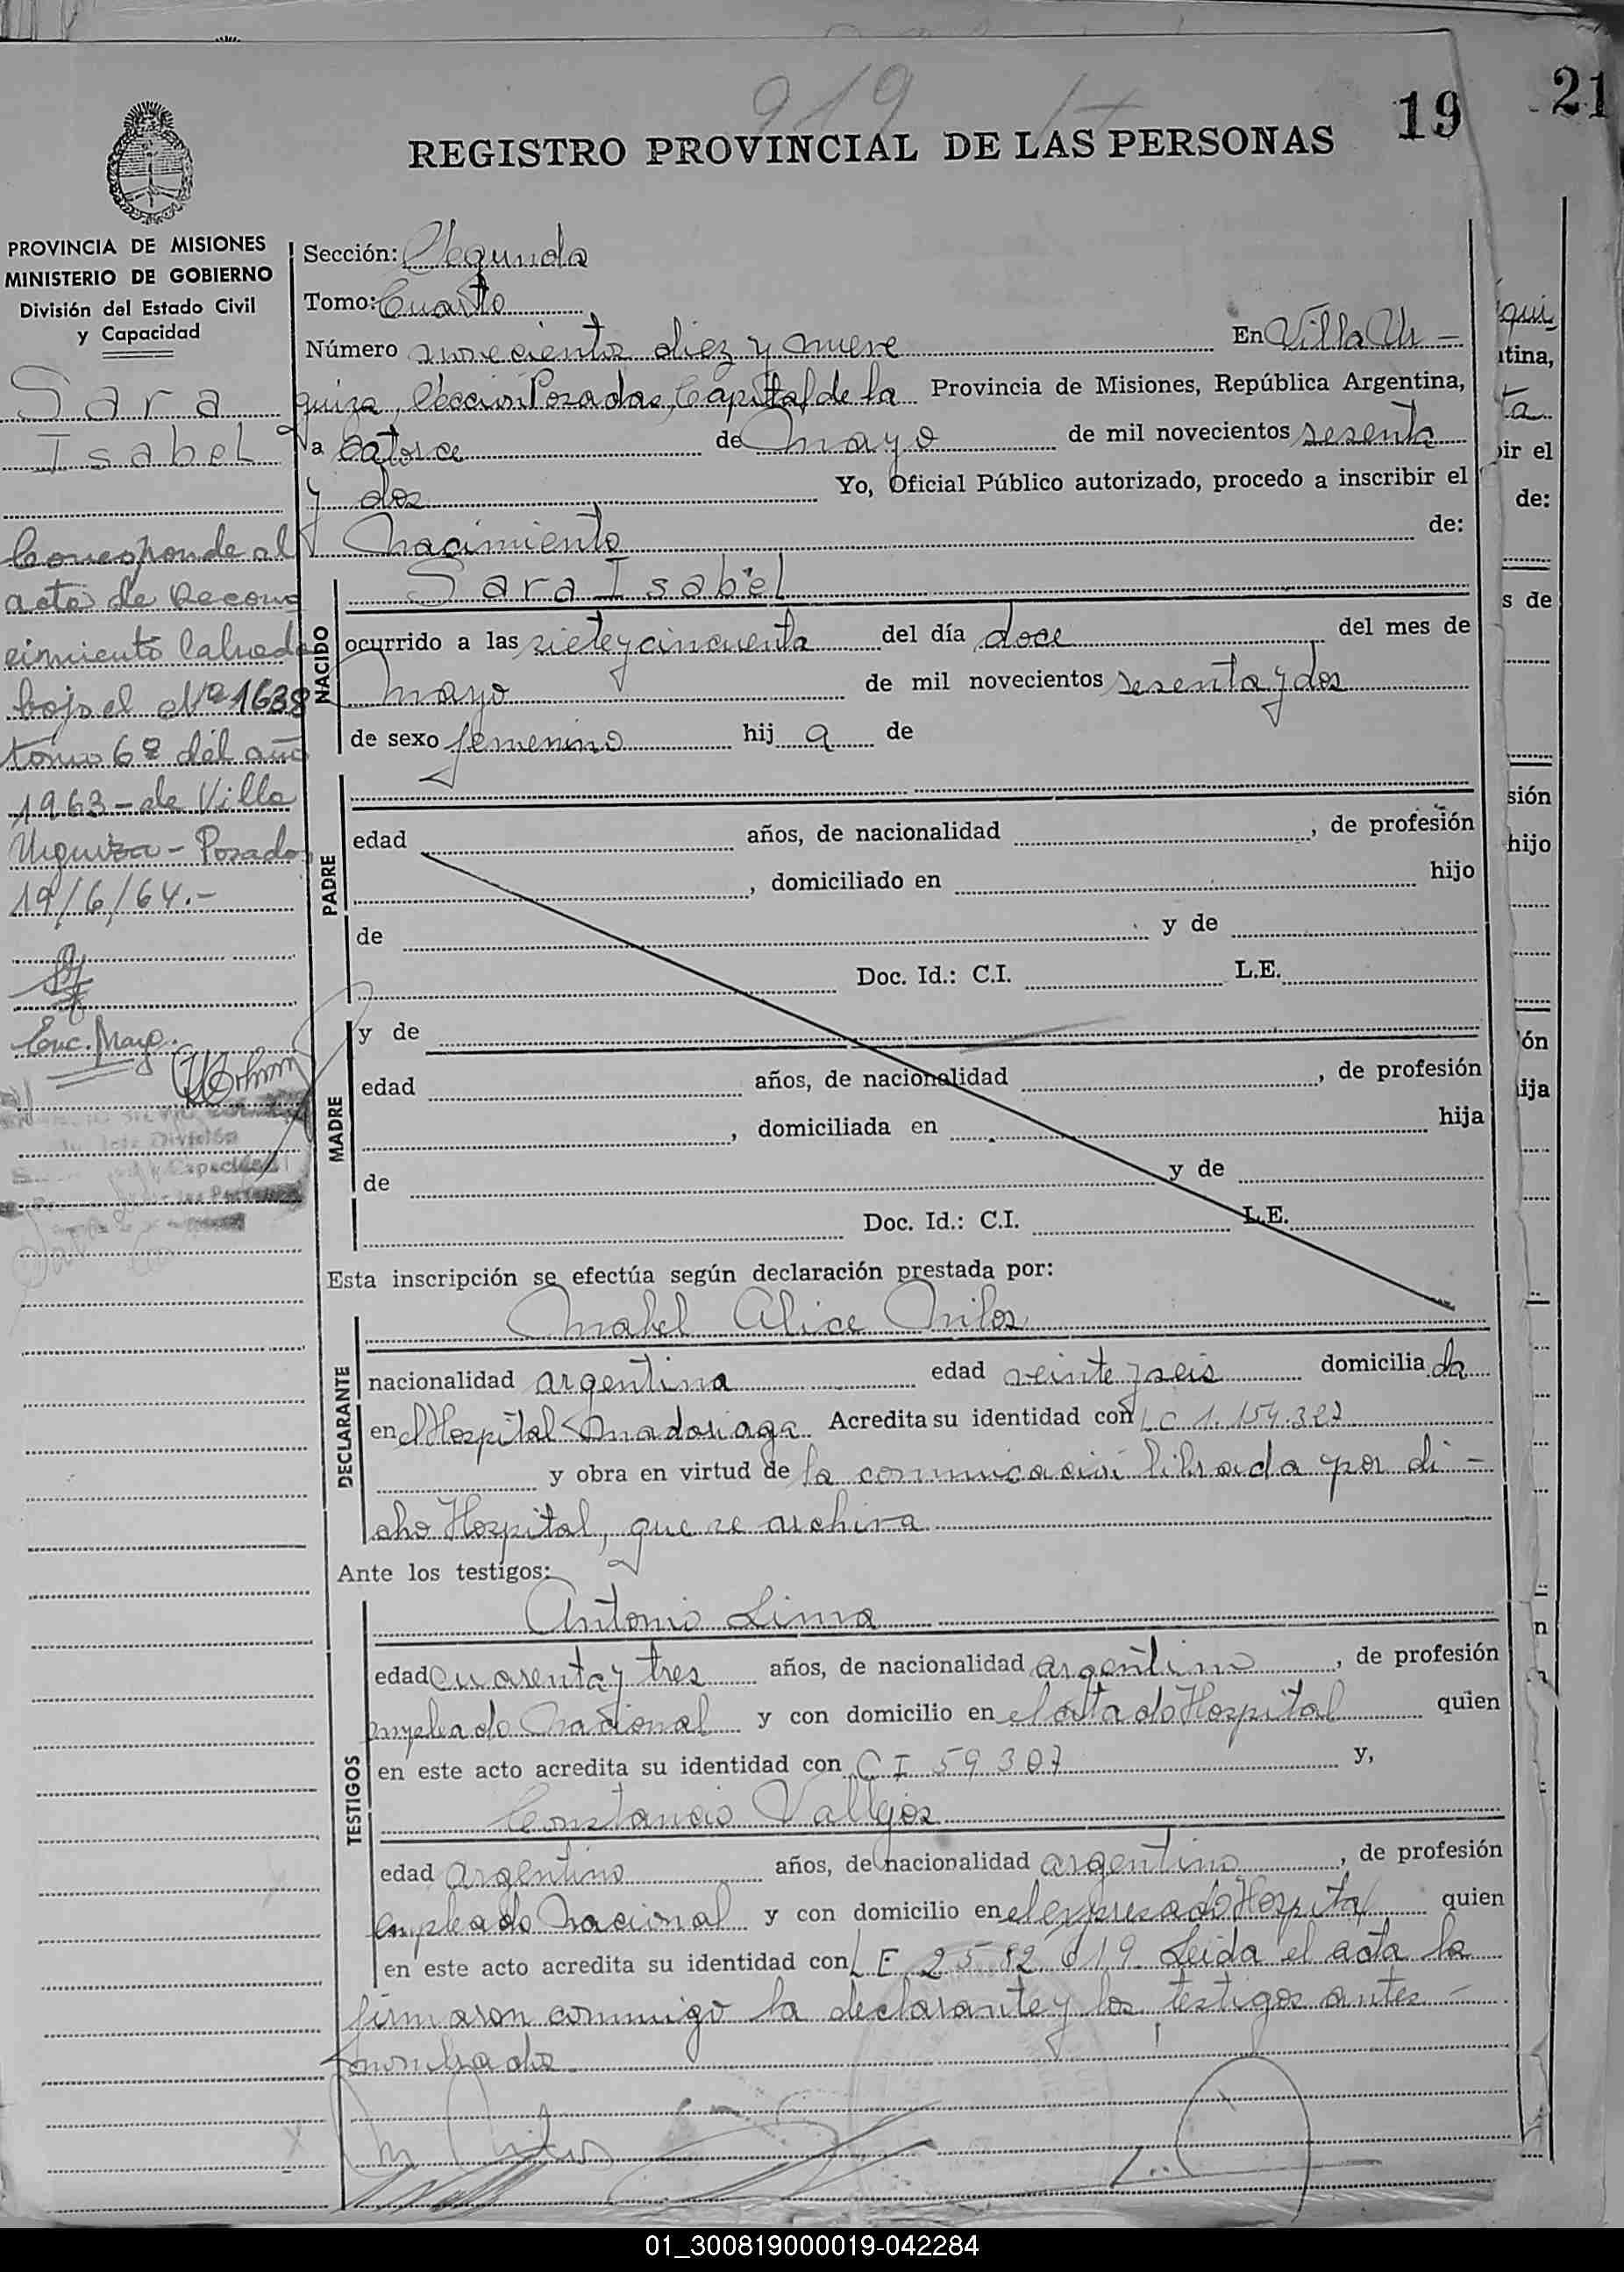 919
19
21
REGISTRO PROVINCIAL DE LAS PERSONAS
PROVINCIA DE MISIONES
MINISTERIO DE GOBIERNO
División del Estado Civil
y Capacidad
Sara
Isabel
Corresponde al
acta de Recono
cimiento labrada
bajo el Nº 1638
tomo 6º del año
1963 - de Villa
Urquiza - Posadas
19/6/64.-
Enc. Mayo.
Sección: Segunda
Tomo: Cuarto
Número novecientos diez y nueve En Villa Ur -
quiza, Sección Posadas, Capital de la Provincia de Misiones, República Argentina,
a catorce de mayo de mil novecientos sesenta
y dos Yo, Oficial Público autorizado, procedo a inscribir el
Nacimiento de:
Sara Isabel
NACIDO
ocurrido a las siete y cincuenta del día doce del mes de
mayo de mil novecientos sesenta y dos
de sexo femenino hij a de
PADRE
edad años, de nacionalidad , de profesión
, domiciliado en hijo
de y de
Doc. Id.: C.I. L.E.
MADRE
y de
edad años, de nacionalidad , de profesión
, domiciliada en hija
de y de
Doc. Id.: C.I. L.E.
Esta inscripción se efectúa según declaración prestada por:
DECLARANTE
Mabel Alice Milos
nacionalidad argentina edad veinte y seis domicilia da
en el Hospital Madariaga Acredita su identidad con L C 1.154.327
y obra en virtud de la comunicación librada por di -
cho Hospital, que se archiva
Ante los testigos:
TESTIGOS
Antonio Lima
edad cuarenta y tres años, de nacionalidad argentino , de profesión
empleado Nacional y con domicilio en el citado Hospital quien
en este acto acredita su identidad con C I 59 307 y,
Constancio Vallejos
edad argentino años, de nacionalidad argentino , de profesión
empleado Nacional y con domicilio en el expresado Hospital quien
en este acto acredita su identidad con L E 25 82 619 Leida el acta la
firmaron conmigo la declarante y los testigos antes -
nombrados
01_300819000019-042284